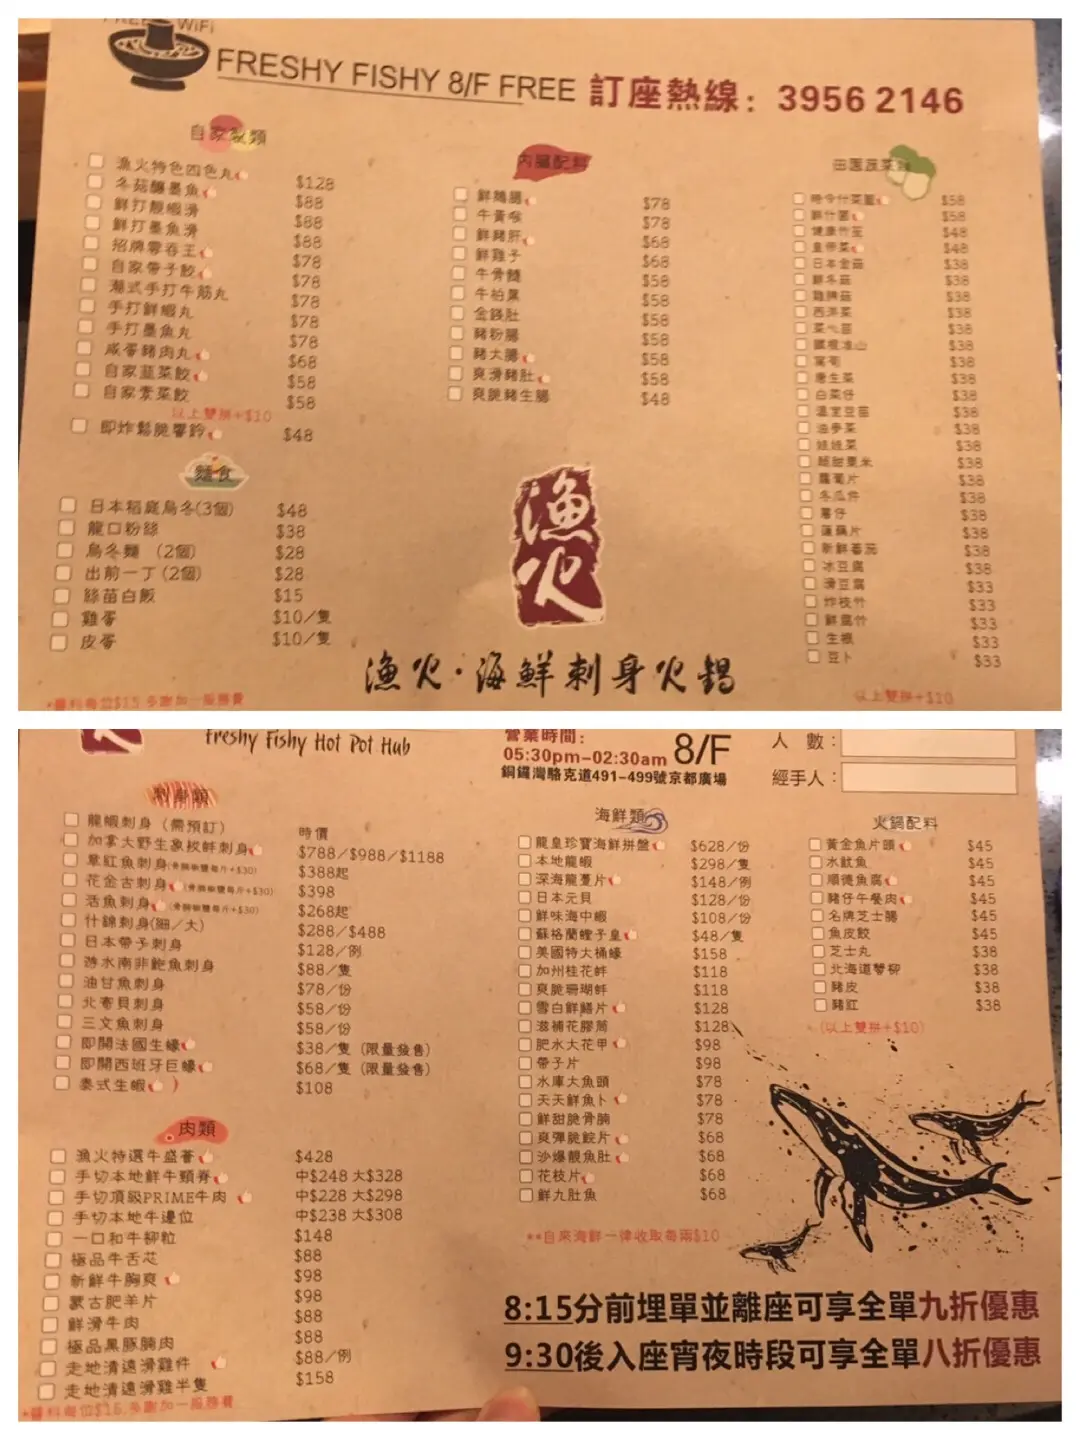 FREE WiFi
FRESHY FISHY 8/F FREE 訂座熱線：3956 2146
自家製類
漁火特色四色丸 $128
冬菇釀墨魚 $88
鮮打靚蝦滑 $88
鮮打墨魚滑 $88
招牌雲吞王 $78
自家帶子餃 $78
潮式手打牛筋丸 $78
手打鮮蝦丸 $78
手打墨魚丸 $78
咸蛋豬肉丸 $68
自家韮菜餃 $58
自家素菜餃 $58
以上雙拼+$10
即炸鬆脆響鈴 $48
麵食
日本稻庭烏冬(3個) $48
龍口粉絲 $38
烏冬麵 (2個) $28
出前一丁(2個) $28
絲苗白飯 $15
雞蛋 $10/隻
皮蛋 $10/隻
*醬料每位$15 多謝加一服務費
內臟配料
鮮鵝腸 $78
牛黃喉 $78
鮮豬肝 $68
鮮雞子 $68
牛骨髓 $58
牛柏葉 $58
金錢肚 $58
豬粉腸 $58
豬大腸 $58
爽滑豬肚 $58
爽脆豬生腸 $48
田園蔬菜類
時令什菜籃 $58
鮮什菌 $58
健康竹笙 $48
皇帝菜 $48
日本金菇 $38
鮮冬菇 $38
雞脾菇 $38
西洋菜 $38
菜心苗 $38
鐵棍淮山 $38
萵筍 $38
唐生菜 $38
白菜仔 $38
溫室豆苗 $38
油麥菜 $38
娃娃菜 $38
超甜粟米 $38
蘿蔔片 $38
冬瓜件 $38
薯仔 $38
蓮藕片 $38
新鮮蕃茄 $38
冰豆腐 $38
滑豆腐 $33
炸枝竹 $33
鮮腐竹 $33
生根 $33
豆卜 $33
以上雙拼+$10
漁火
漁火·海鮮刺身火鍋
Freshy Fishy Hot Pot Hub
營業時間:
05:30pm-02:30am 8/F
銅鑼灣駱克道491-499號京都廣場
人 數：
經手人：
刺身類
龍蝦刺身 (需預訂) 時價
加拿大野生象拔蚌刺身 $788/$988/$1188
章紅魚刺身(骨腩椒鹽每斤+$30) $388起
花金古刺身(骨腩椒鹽每斤+$30) $398
活魚刺身(骨腩椒鹽每斤+$30) $268起
什錦刺身(細/大) $288/$488
日本帶子刺身 $128/例
游水南非鮑魚刺身 $88/隻
油甘魚刺身 $78/份
北寄貝刺身 $58/份
三文魚刺身 $58/份
即開法國生蠔 $38/隻 (限量發售)
即開西班牙巨蠔 $68/隻 (限量發售)
泰式生蝦 ) $108
肉類
漁火特選牛盛薈 $428
手切本地鮮牛頸脊 中$248 大$328
手切頂級PRIME牛肉 中$228 大$298
手切本地牛邊位 中$238 大$308
一口和牛柳粒 $148
極品牛舌芯 $88
新鮮牛胸爽 $98
蒙古肥羊片 $98
鮮滑牛肉 $88
極品黑豚腩肉 $88
走地清遠滑雞件 $88/例
走地清遠滑雞半隻 $158
*醬料每位$15,多謝加一服務費
海鮮類
龍皇珍寶海鮮拼盤 $628/份
本地龍蝦 $298/隻
深海龍躉片 $148/例
日本元貝 $128/份
鮮味海中蝦 $108/份
蘇格蘭蟶子皇 $48/隻
美國特大桶蠔 $158
加州桂花蚌 $118
爽脆珊瑚蚌 $118
雪白鮮鱔片 $128
滋補花膠筒 $128
肥水大花甲 $98
帶子片 $98
水庫大魚頭 $78
天天鮮魚卜 $78
鮮甜脆骨腩 $78
爽彈脆鯇片 $68
沙爆靚魚肚 $68
花枝片 $68
鮮九肚魚 $68
**自來海鮮一律收取每兩$10
火鍋配料
黃金魚片頭 $45
水魷魚 $45
順德魚腐 $45
豬仔午餐肉 $45
名牌芝士腸 $45
魚皮餃 $45
芝士丸 $38
北海道蟹柳 $38
豬皮 $38
豬紅 $38
(以上雙拼+$10)
8:15分前埋單並離座可享全單九折優惠
9:30後入座宵夜時段可享全單八折優惠